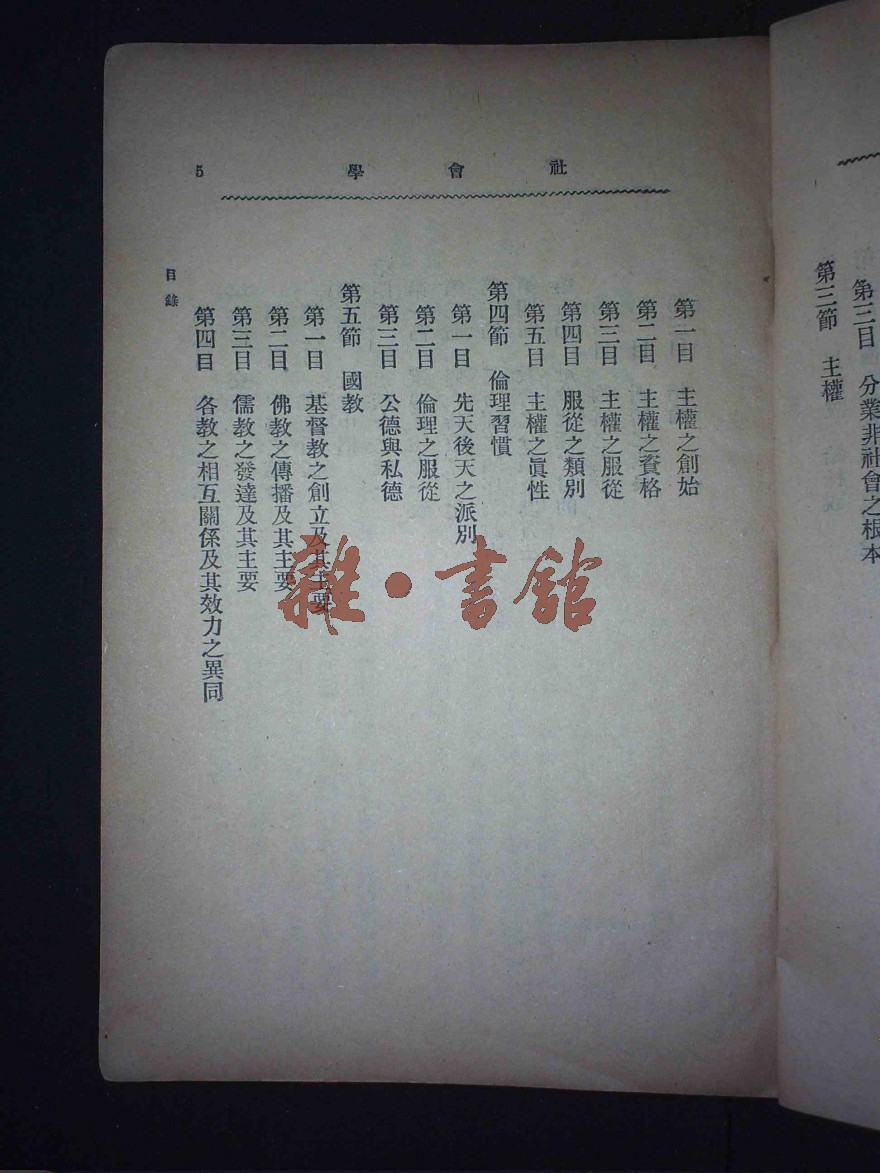 第三目 分業非社會之根本
第三節 主權
社會學
5
第一目 主權之創始
第二目 主權之資格
第三目 主權之服從
第四目 服從之類別
第五目 主權之眞性
第四節 倫理習慣
第一目 先天後天之派別
第二目 倫理之服從
第三目 公德與私德
第五節 國教
第一目 基督教之創立及其主要
第二目 佛教之傳播及其主要
第三目 儒教之發達及其主要
第四目 各教之相互關係及其效力之異同
目錄
雜·書館